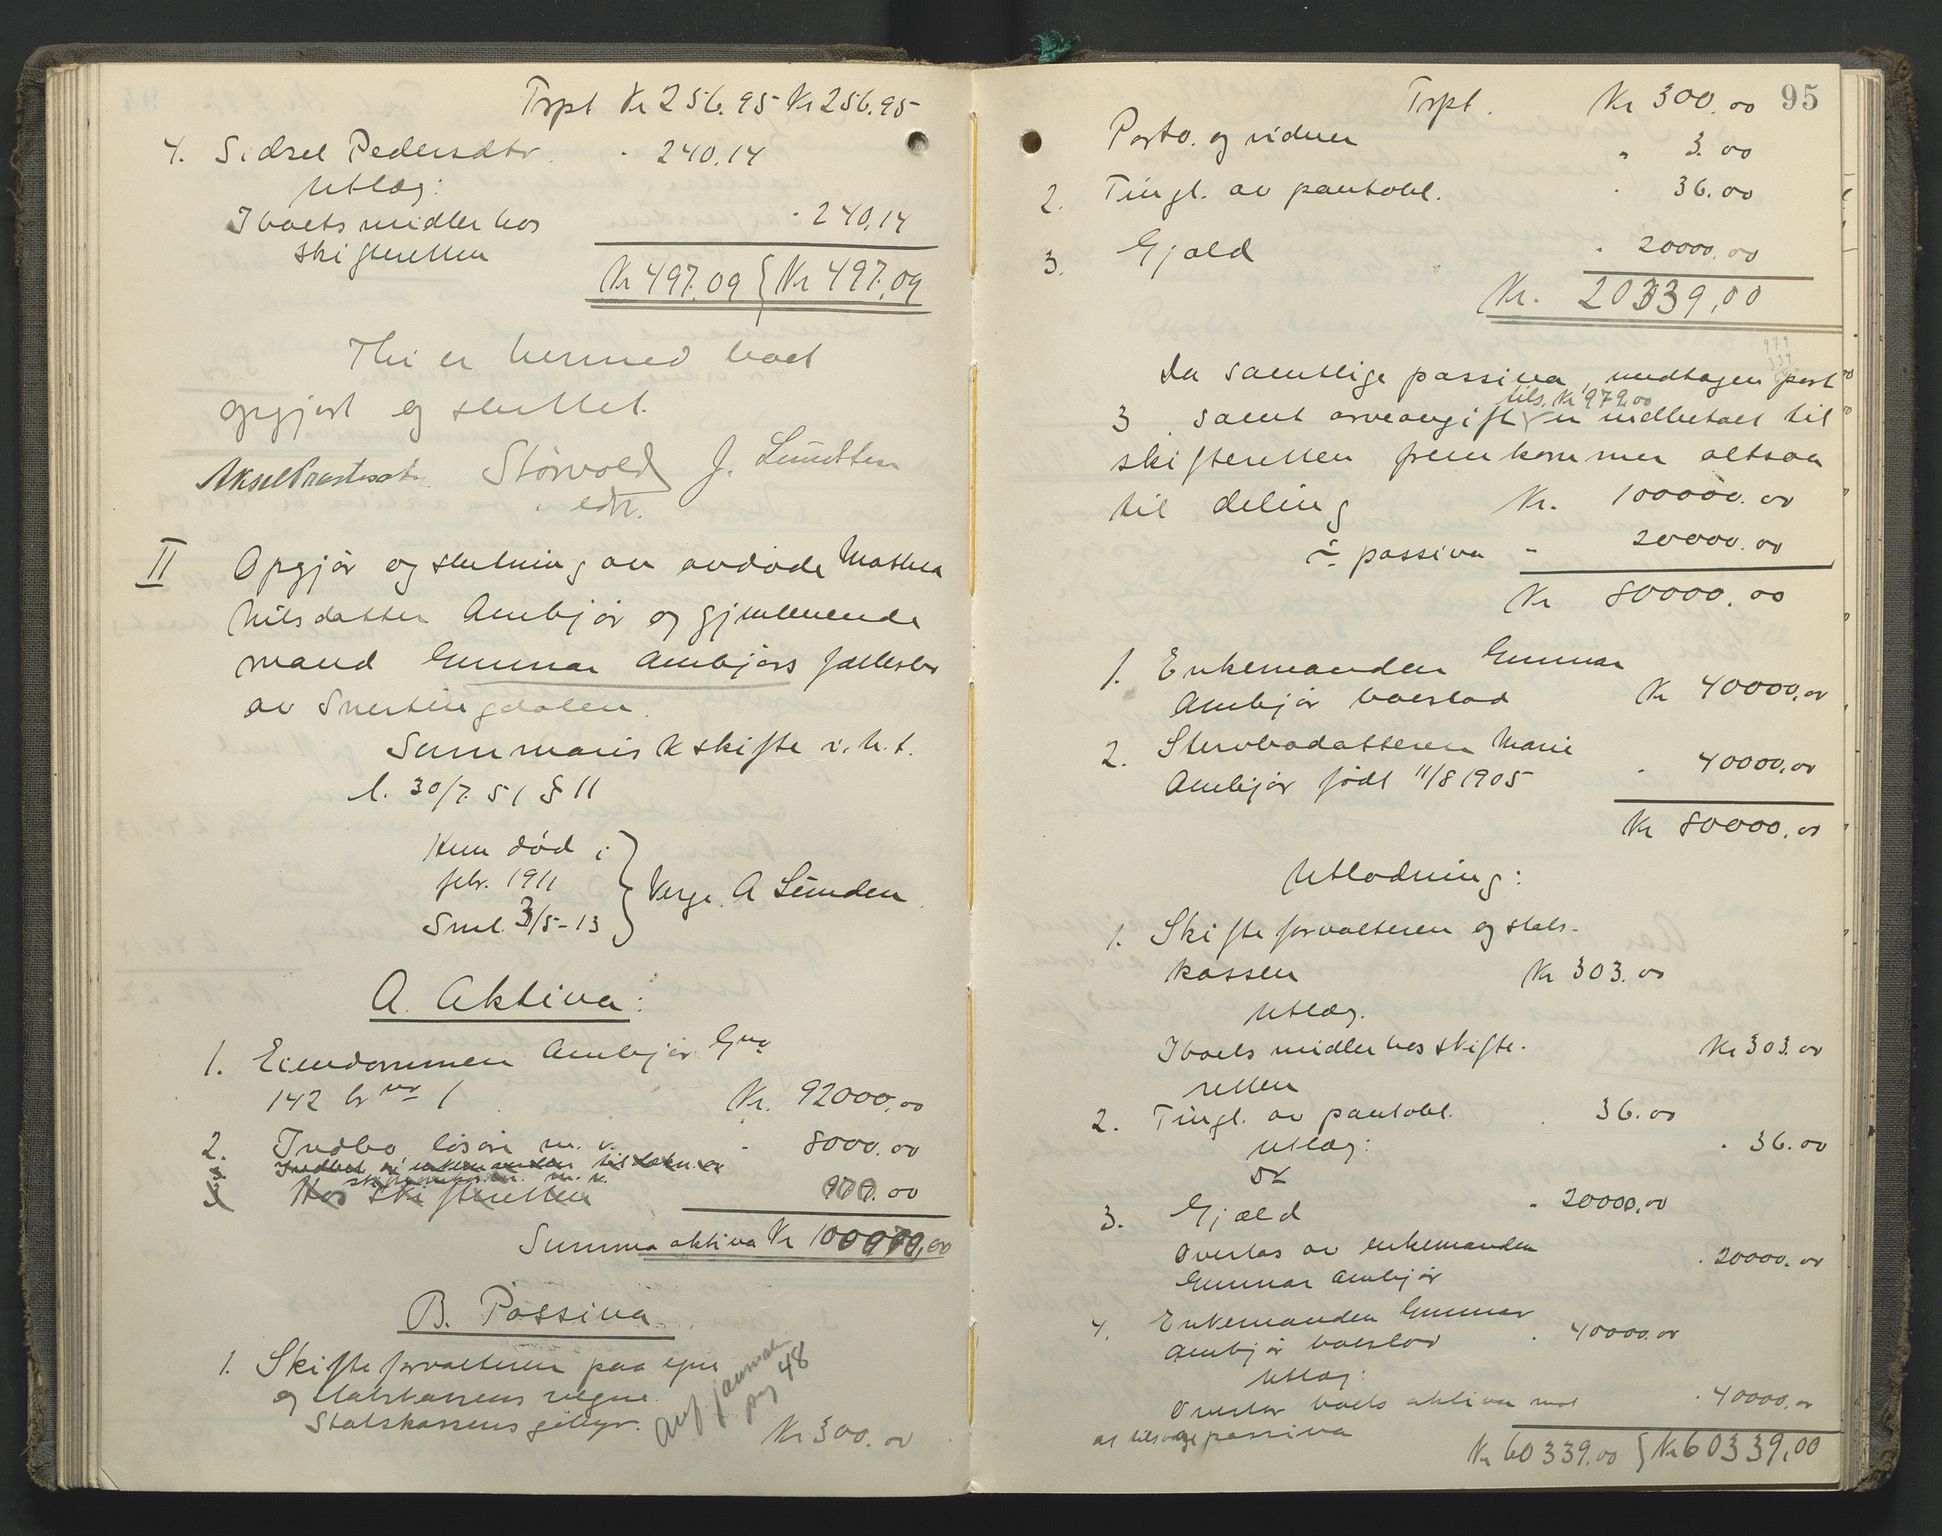 Trpt Kr 256.95 Kr 256.95
4. Sidsel Pedersdtr. " 240.14
Utlæg:
I boets midler hos " 240.14
skifteretten
Kr 497.09 } Kr 497.09
Thi er hermed boet
opgjort og sluttet.
Aksel Størvold J. Sundten
edv.
II Opgjør og slutning av avdøde Mathea
Nilsdatter Ambjør og gjenlevende
mand Gunnar Ambjørs fællesbo
av Snertingdalen.
Summarisk skifte i. h. t.
l. 30/7. 51 § 11
Hun død i
febr. 1911
Sml. 3/5-13
} Verge. A Sunden
A. Aktiva:
1. Eiendommen Ambjør Gno
142 bno 1 Kr. 92000,00
2. Indbo, løsøre m. v. " 8000.00
Indbet. av enkemanden til dækn. av
skifteomkostn. m. v.
3 Hos Skifteretten 979.00
Summa aktiva Kr 100979,00
B. Passiva
1. Skifteforvalteren paa egne
og statskassens vegne
Statskassens gebyr. Kr 300.00
Anf. journal
pag 48
95
Trpt. Kr 300.00
Porto. og vidner " 3.00
2. Tingl. av pantobl. " 36.00
3. Gjæld " 20000.00
Kr. 20339,00
979
339
Da samtlige passiva, undtagen post
tils. Kr 979.00
3 samt arveavgift er indbetalt til
skifteretten fremkommer altsaa
til deling Kr. 100000.00
÷ passiva " 20000.00
Kr 80000.00
1. Enkemanden Gunnar
Ambjør boeslod Kr 40000,00
2. Stervbodatteren Marie
Ambjør født 11/8 1905 " 40000,00
Kr 80000.00
Utlodning:
1. Skifteforvalteren og stats-
kassen Kr 303.00
Utlæg.
I boets midler hos skifte- Kr 303.00
retten
2. Tingl. av pantobl. " 36.00
Utlæg: " 36.00
3. Gjæld " 20000,00
Overtas av enkemanden " 20000.00
Gunnar Ambjør
4. Enkemanden Gunnar
Ambjør boeslod " 40000.00
Utlæg:
Overtar boets aktiva mot " 40000,00
at tilsvare passiva
Kr 60339.00 } Kr 60339,00